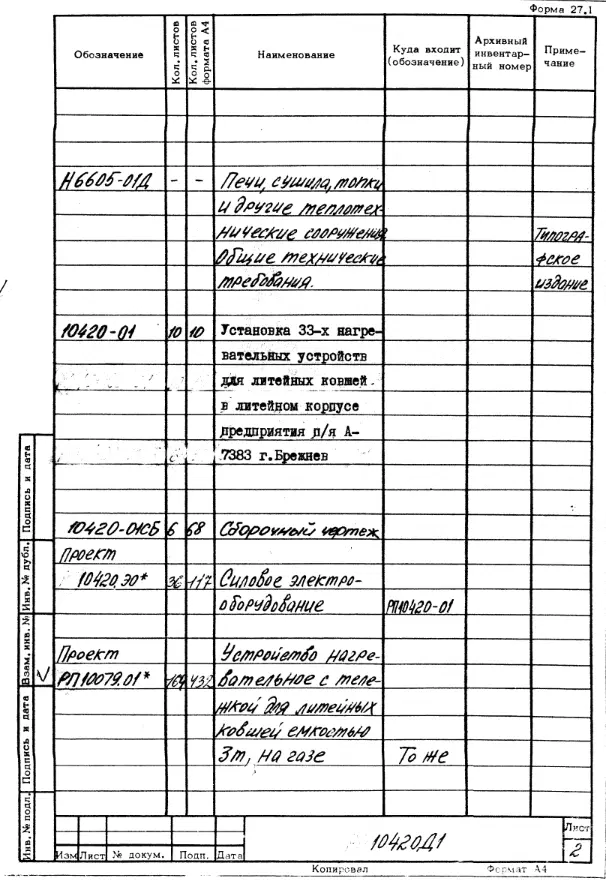 Форма 27.1
Обозначение
Кол. листов
Кол. листов формата А4
Наименование
Куда входит
(обозначение)
Архивный
инвентар-
ный номер
Приме-
чание
Н6605-01Д - - Печи, сушила, топки
и другие теплотех-
нические сооружения
Общие технические
требования.
Типогра-
фское
издание
10420-01 10 10 Установка 33-х нагре-
вательных устройств
для литейных ковшей
в литейном корпусе
предприятия п/я А-
7383 г.Брежнев
10420-01СБ 6 68 Сборочный чертеж
Проект
10420.ЭО* 36 117 Силовое электро-
оборудование РП10420-01
Проект Устройство нагре-
РП10079.01* 164 432 вательное с теле-
жкой для литейных
ковшей емкостью
3т, на газе То же
Инв.№ подл. Подпись и дата Взам. инв. № Инв.№ дубл. Подпись и дата
Изм Лист № докум. Подп. Дата
10420Д1
Лист
2
Копировал Формат А4